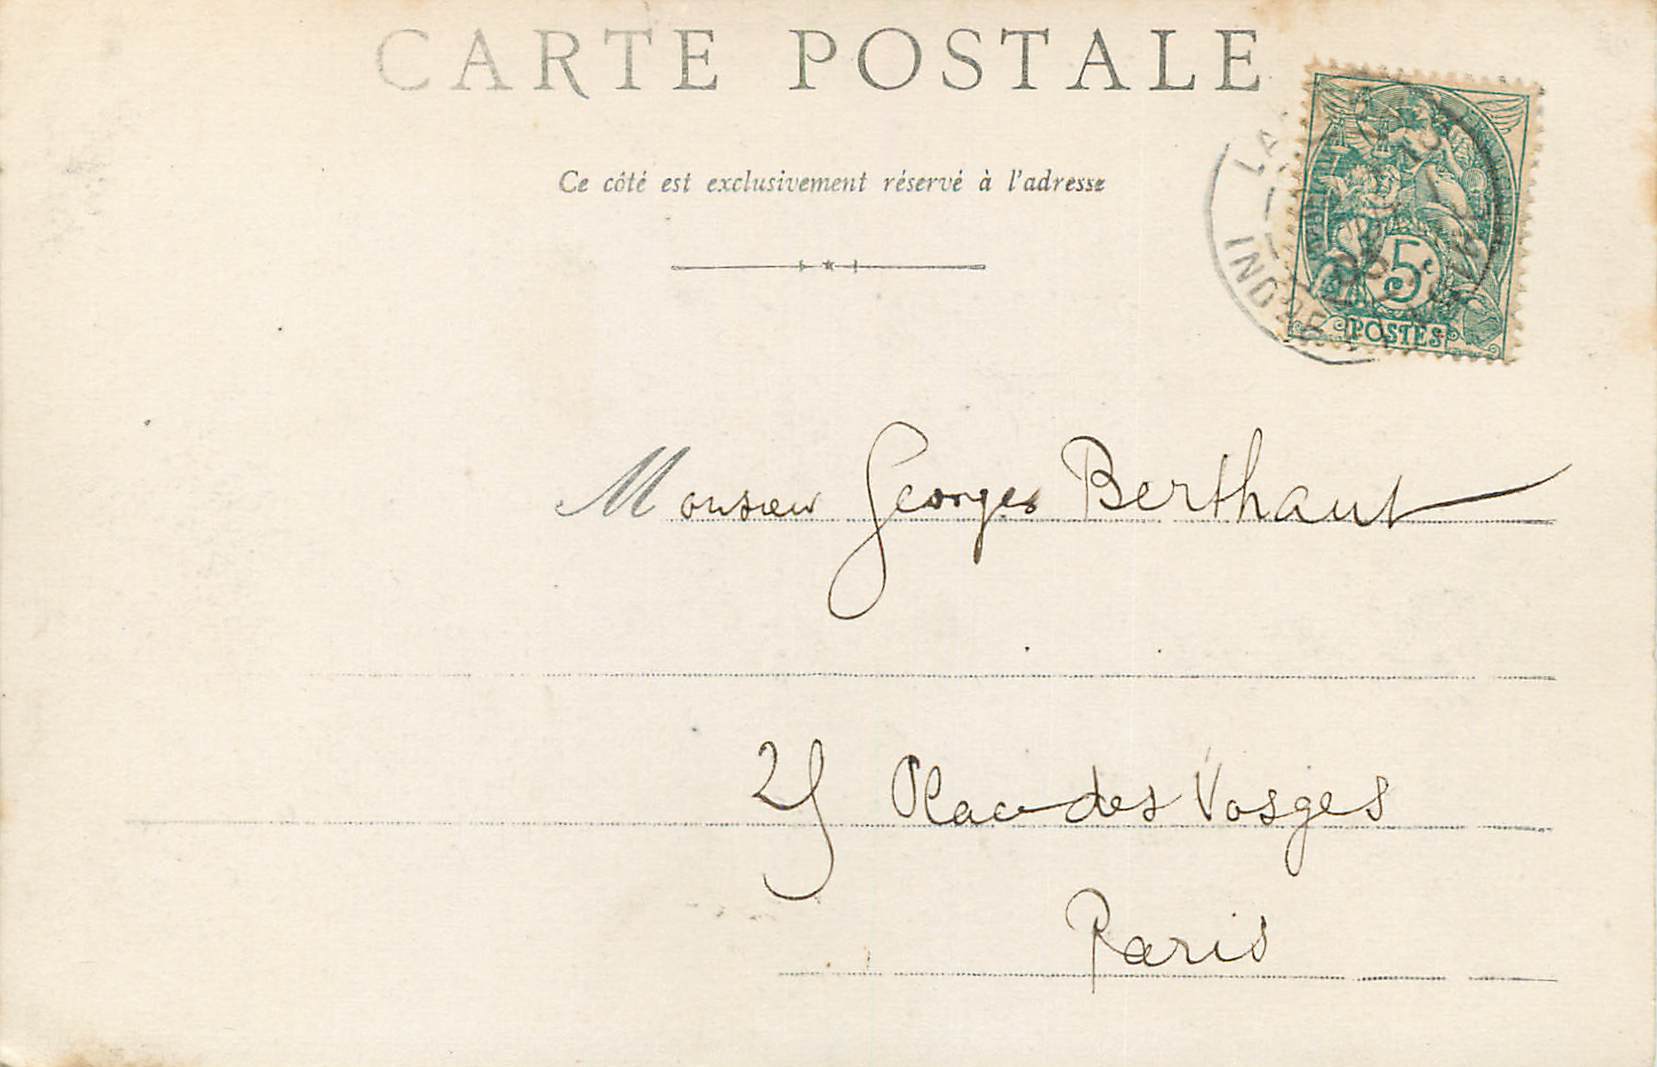 CARTE POSTALE
Ce côté est exclusivement réservé à l'adresse
5c
POSTES
INDRE
Monsieur Georges Berthaut
25 Place des Vosges
Paris